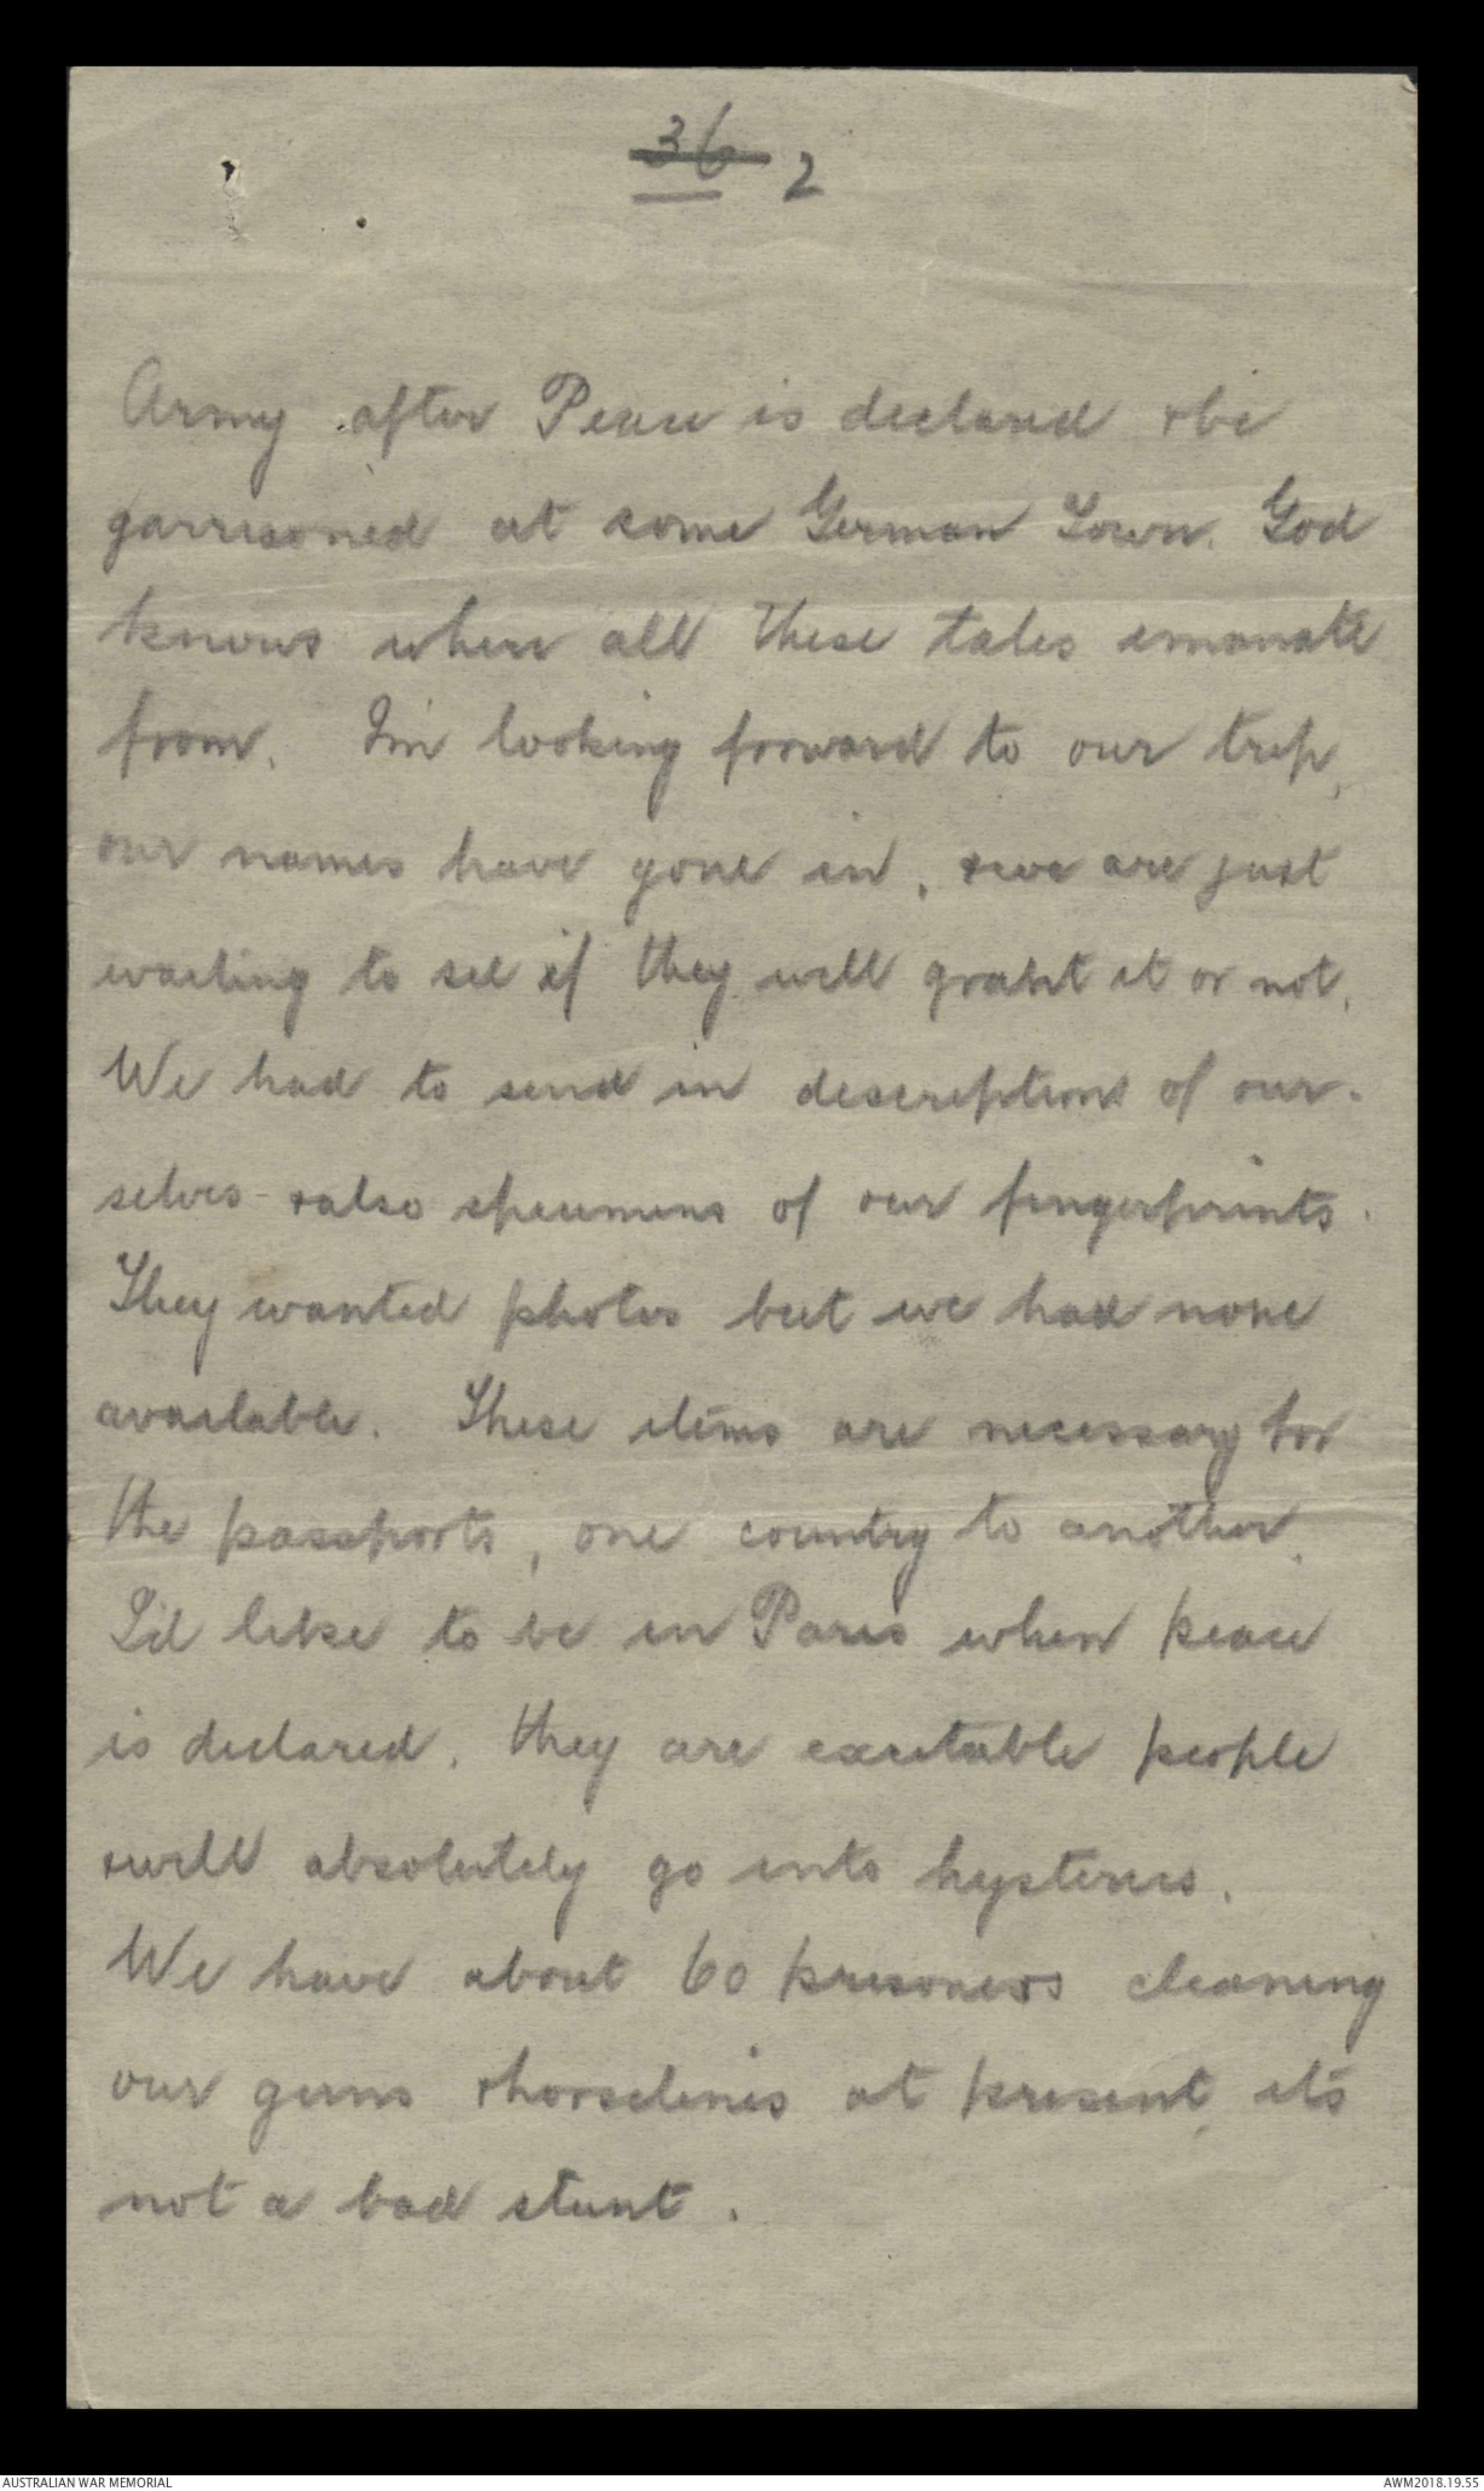 36 2
Army after Peace is declared & be
garrisoned at some German Town. God
knows where all these tales emanate
from. I'm looking forward to our trip,
our names have gone in, & we are just
waiting to see if they will grant it or not.
We had to send in descriptions of our-
selves & also specimens of our fingerprints.
They wanted photos but we had none
available. These items are necessary for
the passports, one country to another.
I'd like to be in Paris when peace
is declared. they are excitable people
& will absolutely go into hysterics.
We have about 60 prisoners cleaning
our guns & horselines at present, it's
not a bad stunt.
AUSTRALIAN WAR MEMORIAL AWM2018.19.55